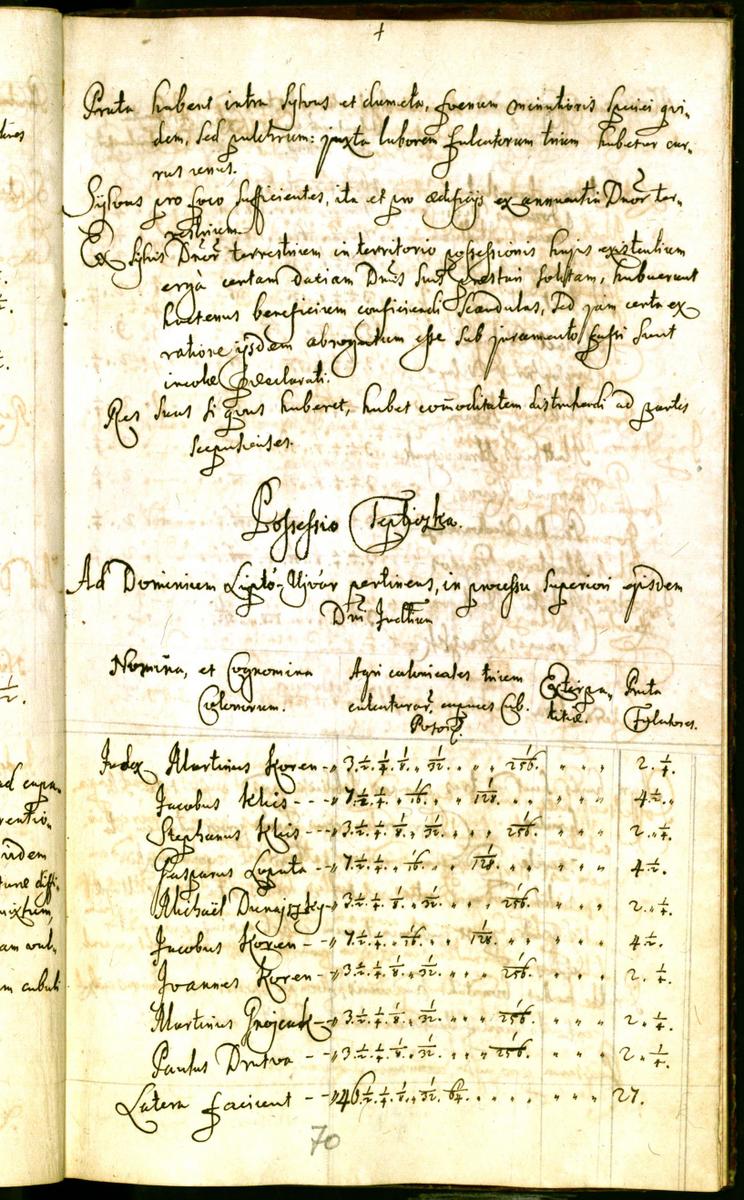 Prata habent intra Sylvas et dumeta, foenum minutioris speciei qvi„
dem, sed pulchrum: juxta laborem falcatorum trium habetur cur„
rus unus.
Sylvas pro foco sufficientes, ita et pro aedificijs ex annuentia Dnor ter„
restrium.
Ex Sylvis Dnor terrestrium in territorio possessionis hujus existentium
erga certam datiam Dnis Suis praestari solitam, habuerunt
hactenus beneficium conficiendi Scandulas, Sed jam certa ex
ratione ijsdem abrogatum esse Sub juramento fassi sunt
incolae praedeclarati.
Res Suas si qvas haberet, habet comoditatem distrahendi ad partes
Scepusienses.
Possessio Tepliczka.
Ad Dominium Liptó-Ujvár pertinens, in processu Superiori ejusdem
Dni Judlium
Nomina, et Cognomina
Colonorum.
Agri colonicales trium
calcaturar, capaces Cub.
Poson.
Extirpa„
titiae.
Prata
Falcator.
Judex Martinus Koren -„ 3. 1/2. 1/4. 1/8. „ 1/32. „ „ 1/256. „ „ „ 2. 1/4.
Jacobus Klis - - - „ 7. 1/2. 1/4. „ 1/16. „ „ 1/128. „ „ „ „ 4. 1/2. „
Stephanus Klis - - „ 3. 1/2. 1/4. 1/8. „ 1/32. „ „ 1/256. „ „ „ 2. „ 1/4.
Gasparus Laputa „ 7. 1/2. 1/4. „ 1/16. „ „ 1/128. „ „ „ „ 4. 1/2.
Michaël Dunajszky -„ 3. 1/2. 1/4. 1/8. „ 1/32. „ „ 1/256. „ „ „ 2. „ 1/4.
Jacobus Koren - „ 7. 1/2. 1/4. „ 1/16. „ „ 1/128. „ „ „ „ 4. 1/2.
Joannes Koren - „ 3. 1/2. 1/4. 1/8. „ 1/32. „ „ 1/256. „ „ „ 2. 1/4.
Martinus Gnojcsak - „ 3. 1/2. 1/4. 1/8. „ 1/32. „ „ 1/256. „ „ „ 2. „ 1/4.
Paulus Drutva - - „ 3. 1/2. 1/4. 1/8. „ 1/32. „ „ 1/256. „ „ „ 2. „ 1/4.
Latera faciunt - - „ 46. 1/2. 1/4. 1/8. „ 1/32. 1/64. „ „ „ „ „ „ 27.
70